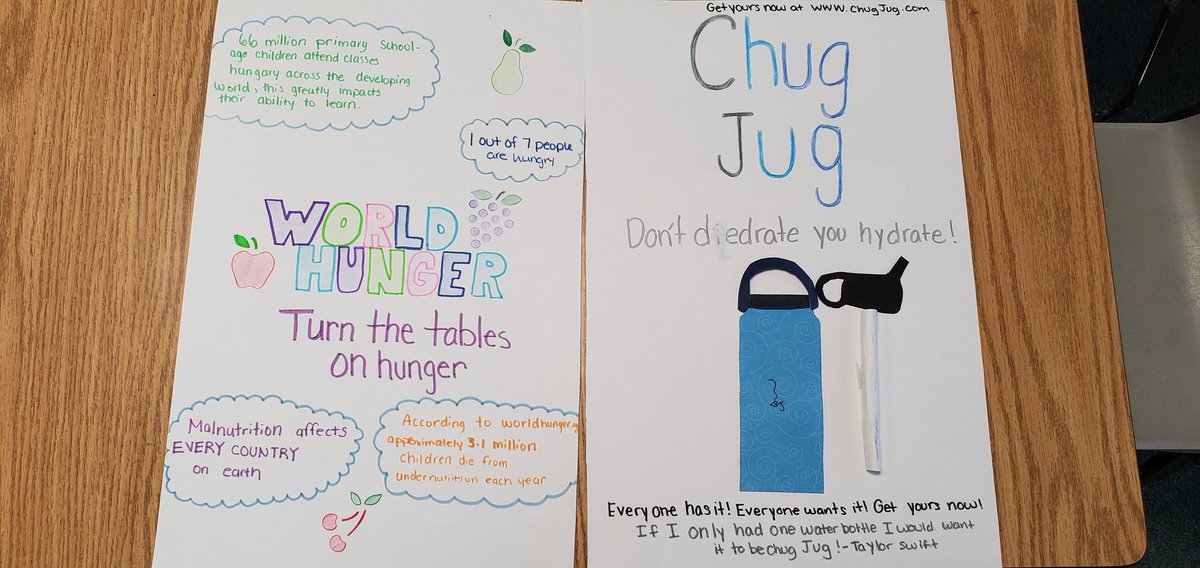 66 million primary school-
age children attend classes
hungary across the developing
world, this greatly impacts
their ability to learn.
1 out of 7 people
are hungry
WORLD
HUNGER
Turn the tables
on hunger
Malnutrition affects
EVERY COUNTRY
on earth
According to worldhunger.org
appoximately 3.1 million
children die from
undernutrition each year
Get yours now at www.chugJug.com
Chug
Jug
Don't diedrate you hydrate!
Everyone has it! Everyone wants it! Get yours now!
If I only had one water bottle I would want
it to be chug Jug!-Taylor Swift